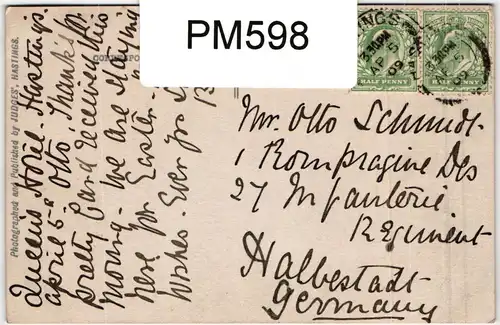 PM598
Photographed and Published by JUDGES', HASTINGS.
Queens Hotel. Hastings.
April 5th
Otto. Thanks for
pretty Card received this
morning. We are staying
here for Easter.
Wishes. Ever yrs
HALF PENNY
HALF PENNY
Mr. Otto Schmidt.
1 Kompagnie Des
27 Infanterie
Regiment
Halbestadt
Germany